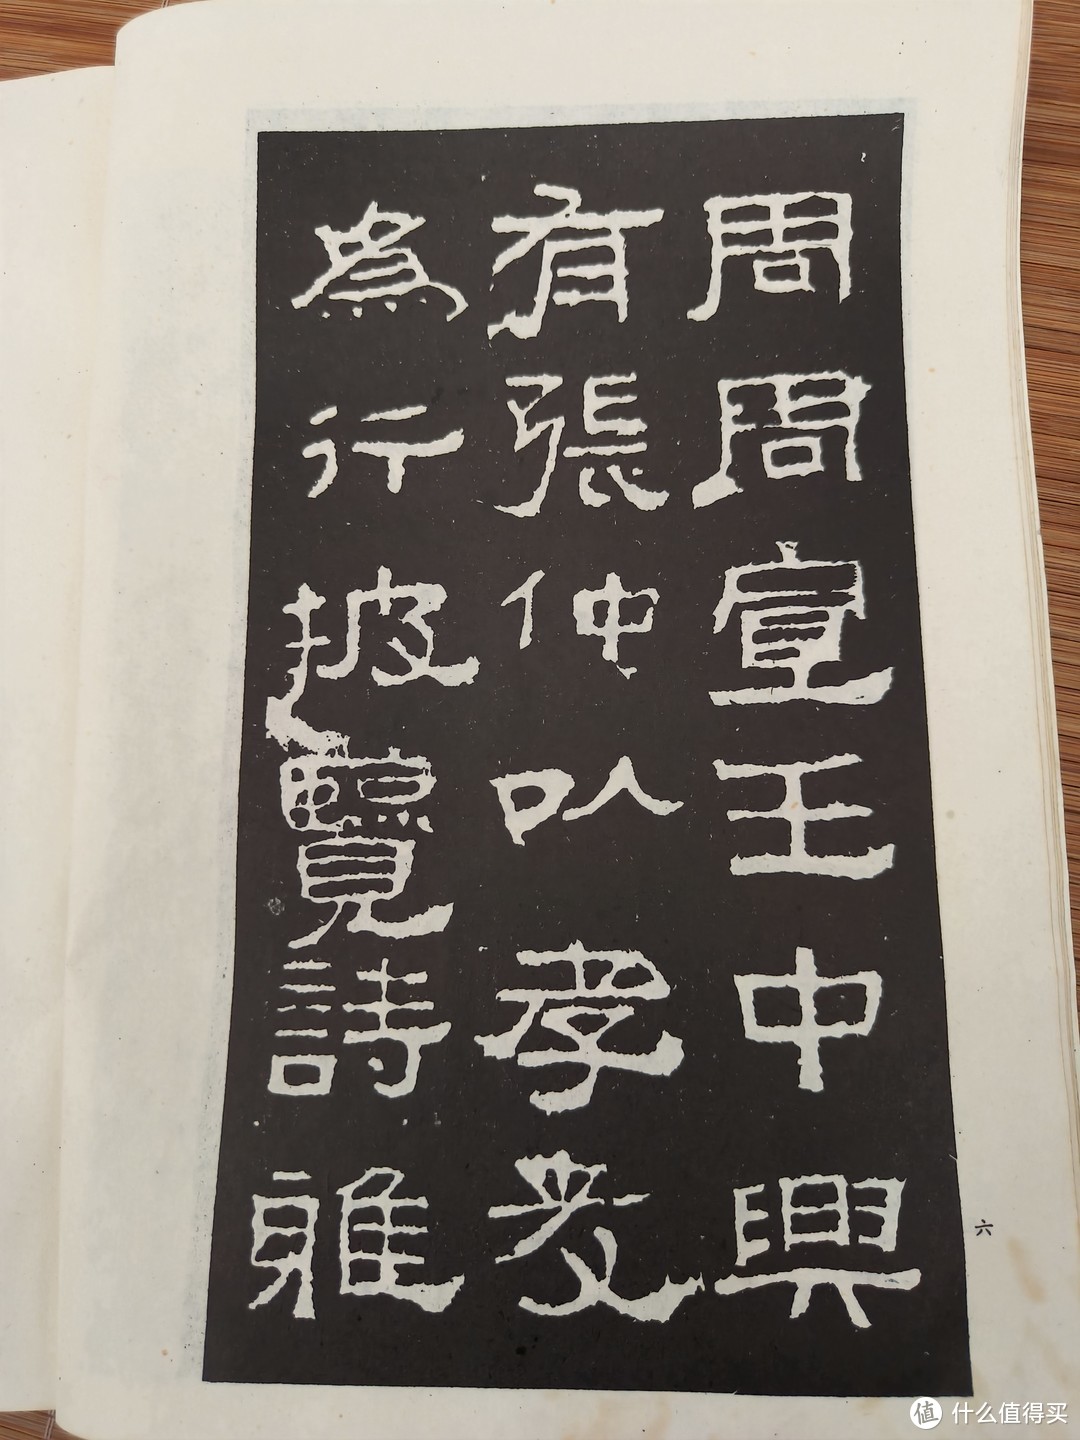 周周宣王中興
有張仲以孝友
為行披覽詩雅
六
值 什么值得买